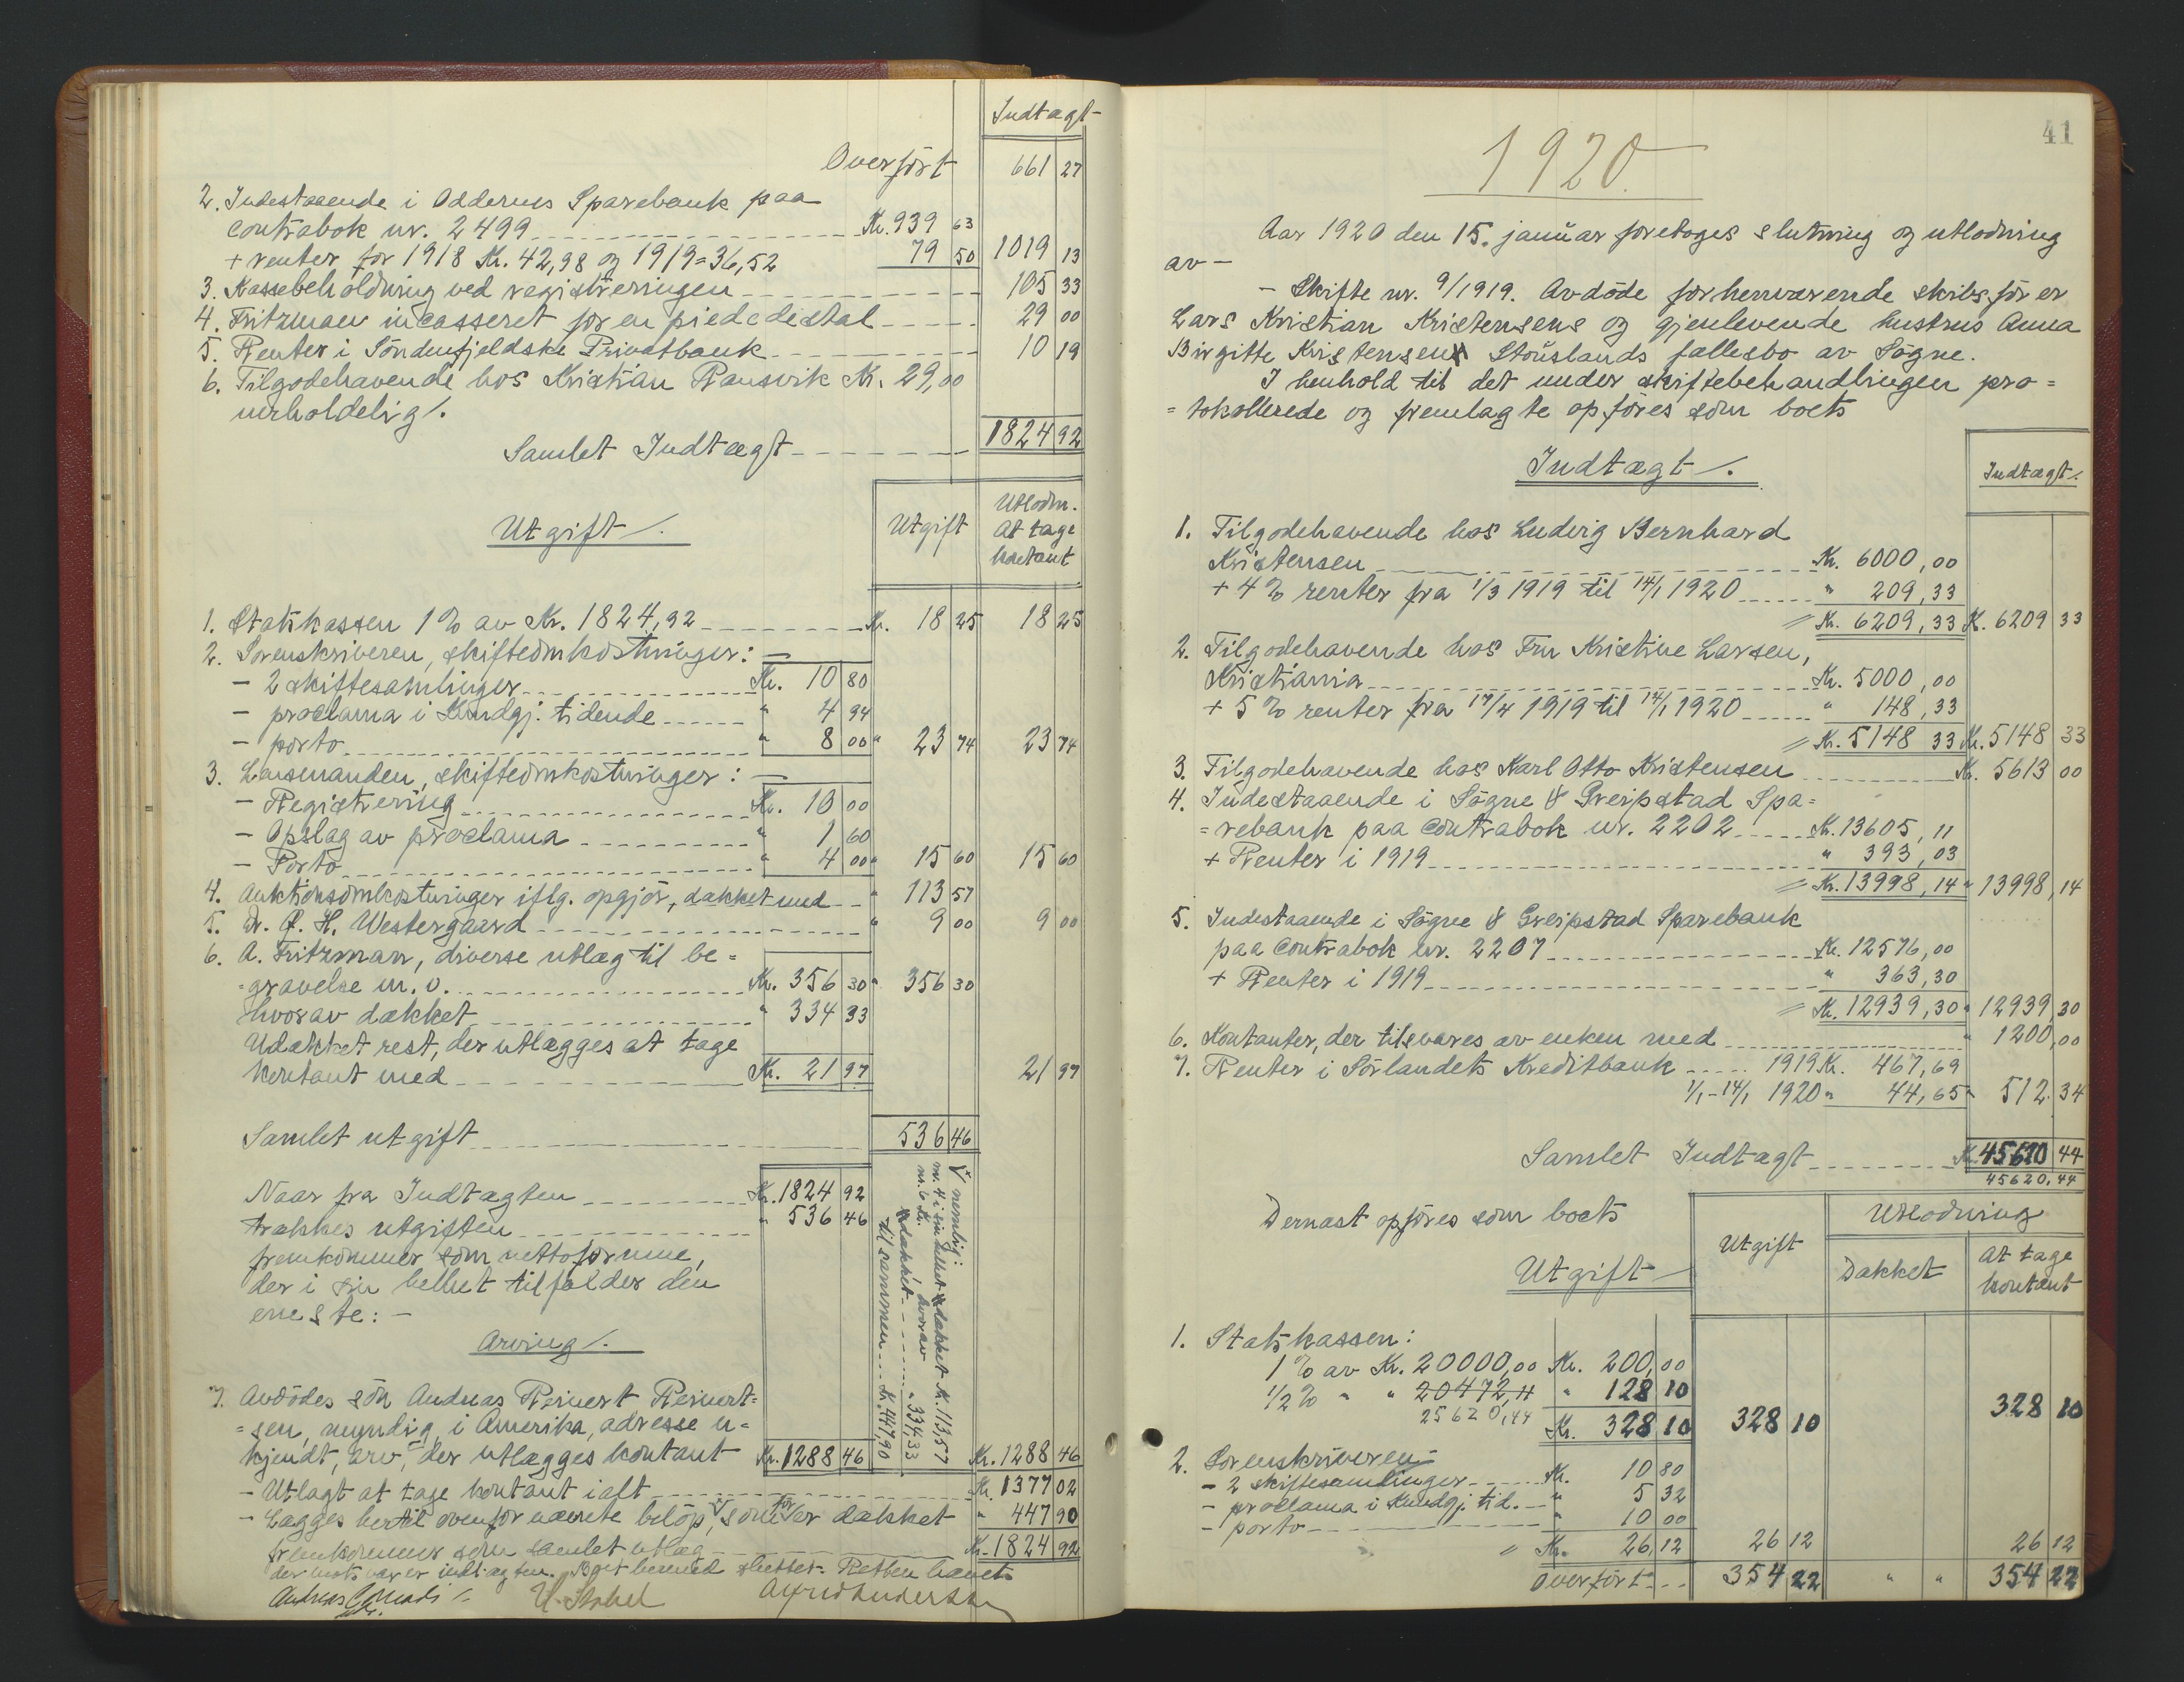 Indtægt
Overført 661 27
2. Indestaaende i Oddernes Sparebank paa
contrabok nr. 2499 Kr. 939 63
+ renter for 1918 Kr. 42,98 og 1919 = 36,52 79 50 1019 13
3. Kassebeholdning ved registreringen 105 33
4. Fritzman incasseret for en piededistal 29 00
5. Renter i Söndenfjeldske Privatbank 10 19
6. Tilgodehavende hos Kristian Ransvik Kr. 29,00
uerholdelig /.
Samlet Indtægt 1824 92
Utgift /.
Utgift
Utlodn.
At tage
kontant
1. Statskassen 1 % av Kr. 1824,92 Kr. 18 25 18 25
2. Sorenskriveren, skifteomkostninger: -
- 2 skiftesamlinger Kr. 10 80
- proclama i Kundgj. tidende " 4 94
- porto " 8 00 " 23 74 23 74
3. Lensmanden, skifteomkostninger: -
- Registrering Kr. 10 00
- Opslag av proclama " 1 60
- Porto " 4 00 " 15 60 15 60
4. Auktionsomkostninger iflg. opgjör, dækket med " 113 57
5. Dr. H. Westergaard " 9 00 9 00
6. A. Fritzman, diverse utlæg til be=
=gravelse m. v. Kr. 356 30 " 356 30
hvorav dækket " 334 33
Udækket rest, der utlægges at tage
kontant med Kr. 21 97 21 97
Samlet utgift 536 46
V nemlig:
nr. 4 i sin helhet dækket Kr. 113,57
nr. 6 Kr. hvorav
dækket " 334,33
tilsammen Kr. 447,90
Naar fra Indtægten Kr. 1824 92
trækkes utgiften " 536 46
fremkommer som nettoformue,
der i sin helhet tilfalder den
eneste: -
Arving /.
7. Avdödes sön Andreas Reinert Reinert=
=sen, myndig, i Amerika, adresse u=
kjendt, arv, der utlægges kontant Kr. 1288 46 Kr. 1288 46
- Utlagt at tage kontant ialt Kr. 1377 02
- Lægges hertil ovenfor nævnte belöp, V som för er dækket " 447 90
fremkommer som samlet utlæg Kr. 1824 92
der motsvarer indtægten. Boet hermed sluttet. Retten hævet.
H. Stabel
Alfred Andersen
41
1920.
Aar 1920 den 15. januar foretoges slutning og utlodning
av -
- Skifte nr. 9/1919. Avdöde forhenværende skibsförer
Lars Kristian Kristensens og gjenlevende hustrus Anna
Birgitte Kristensens Stouslands fællesbo av Sögne.
I henhold til det under skiftebehandlingen pro=
=tokollerede og fremlagte opföres som boets
Indtægt /.
Indtægt /.
1. Tilgodehavende hos Ludvig Bernhard
Kristensen Kr. 6000,00
+ 4 % renter fra 1/3 1919 til 14/1 1920 " 209,33
= Kr. 6209,33 K. 6209 33
2. Tilgodehavende hos Fru Kristine Larsen,
Kristiania Kr. 5000,00
+ 5 % renter fra 17/4 1919 til 14/1 1920 " 148,33
= Kr. 5148 33 Kr. 5148 33
3. Tilgodehavende hos Karl Otto Kristensen Kr. 5613 00
4. Indestaaende i Sögne & Greipstad Spa=
=rebank paa contrabok nr. 2202 Kr. 13605,11
+ Renter i 1919 " 393,03
= Kr. 13998,14 " 13998,14
5. Indestaaende i Sögne & Greipstad Sparebank
paa contrabok nr. 2207 Kr. 12576,00
+ Renter i 1919 " 363,30
= Kr. 12939,30 " 12939,30
6. Kontanter, der tilsvares av enken med " 1200,00
7. Renter i Sörlandets Kreditbank 1919 Kr. 467,69
1/1-14/1 1920 " 44,65 " 512.34
Samlet Indtægt Kr. 45620 44
45620,44
Dernæst opföres som boets
Utgift
Utgift
Utlodning
Dækket
At tage
kontant
1. Statskassen:
1 % av Kr. 20000,00 Kr. 200,00
1/2 % " " 20472,11 " 128 10
25620,44 Kr. 328 10 328 10 328 10
2. Sorenskriveren:
- 2 skiftesamlinger Kr. 10 80
- proclama i Kundgj. tid. " 5 32
- porto " 10 00
= Kr. 26,12 26 12 26 12
Overfört 354 22 " " 354 22